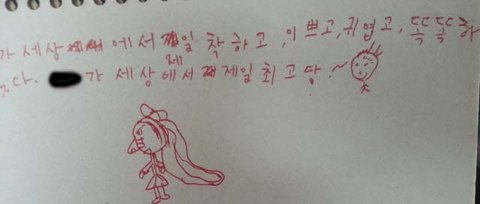 가 세상에서 제일 착하고, 이쁘고, 귀엽고, 똑똑하
다. 가 세상에서 제일 최고당.~